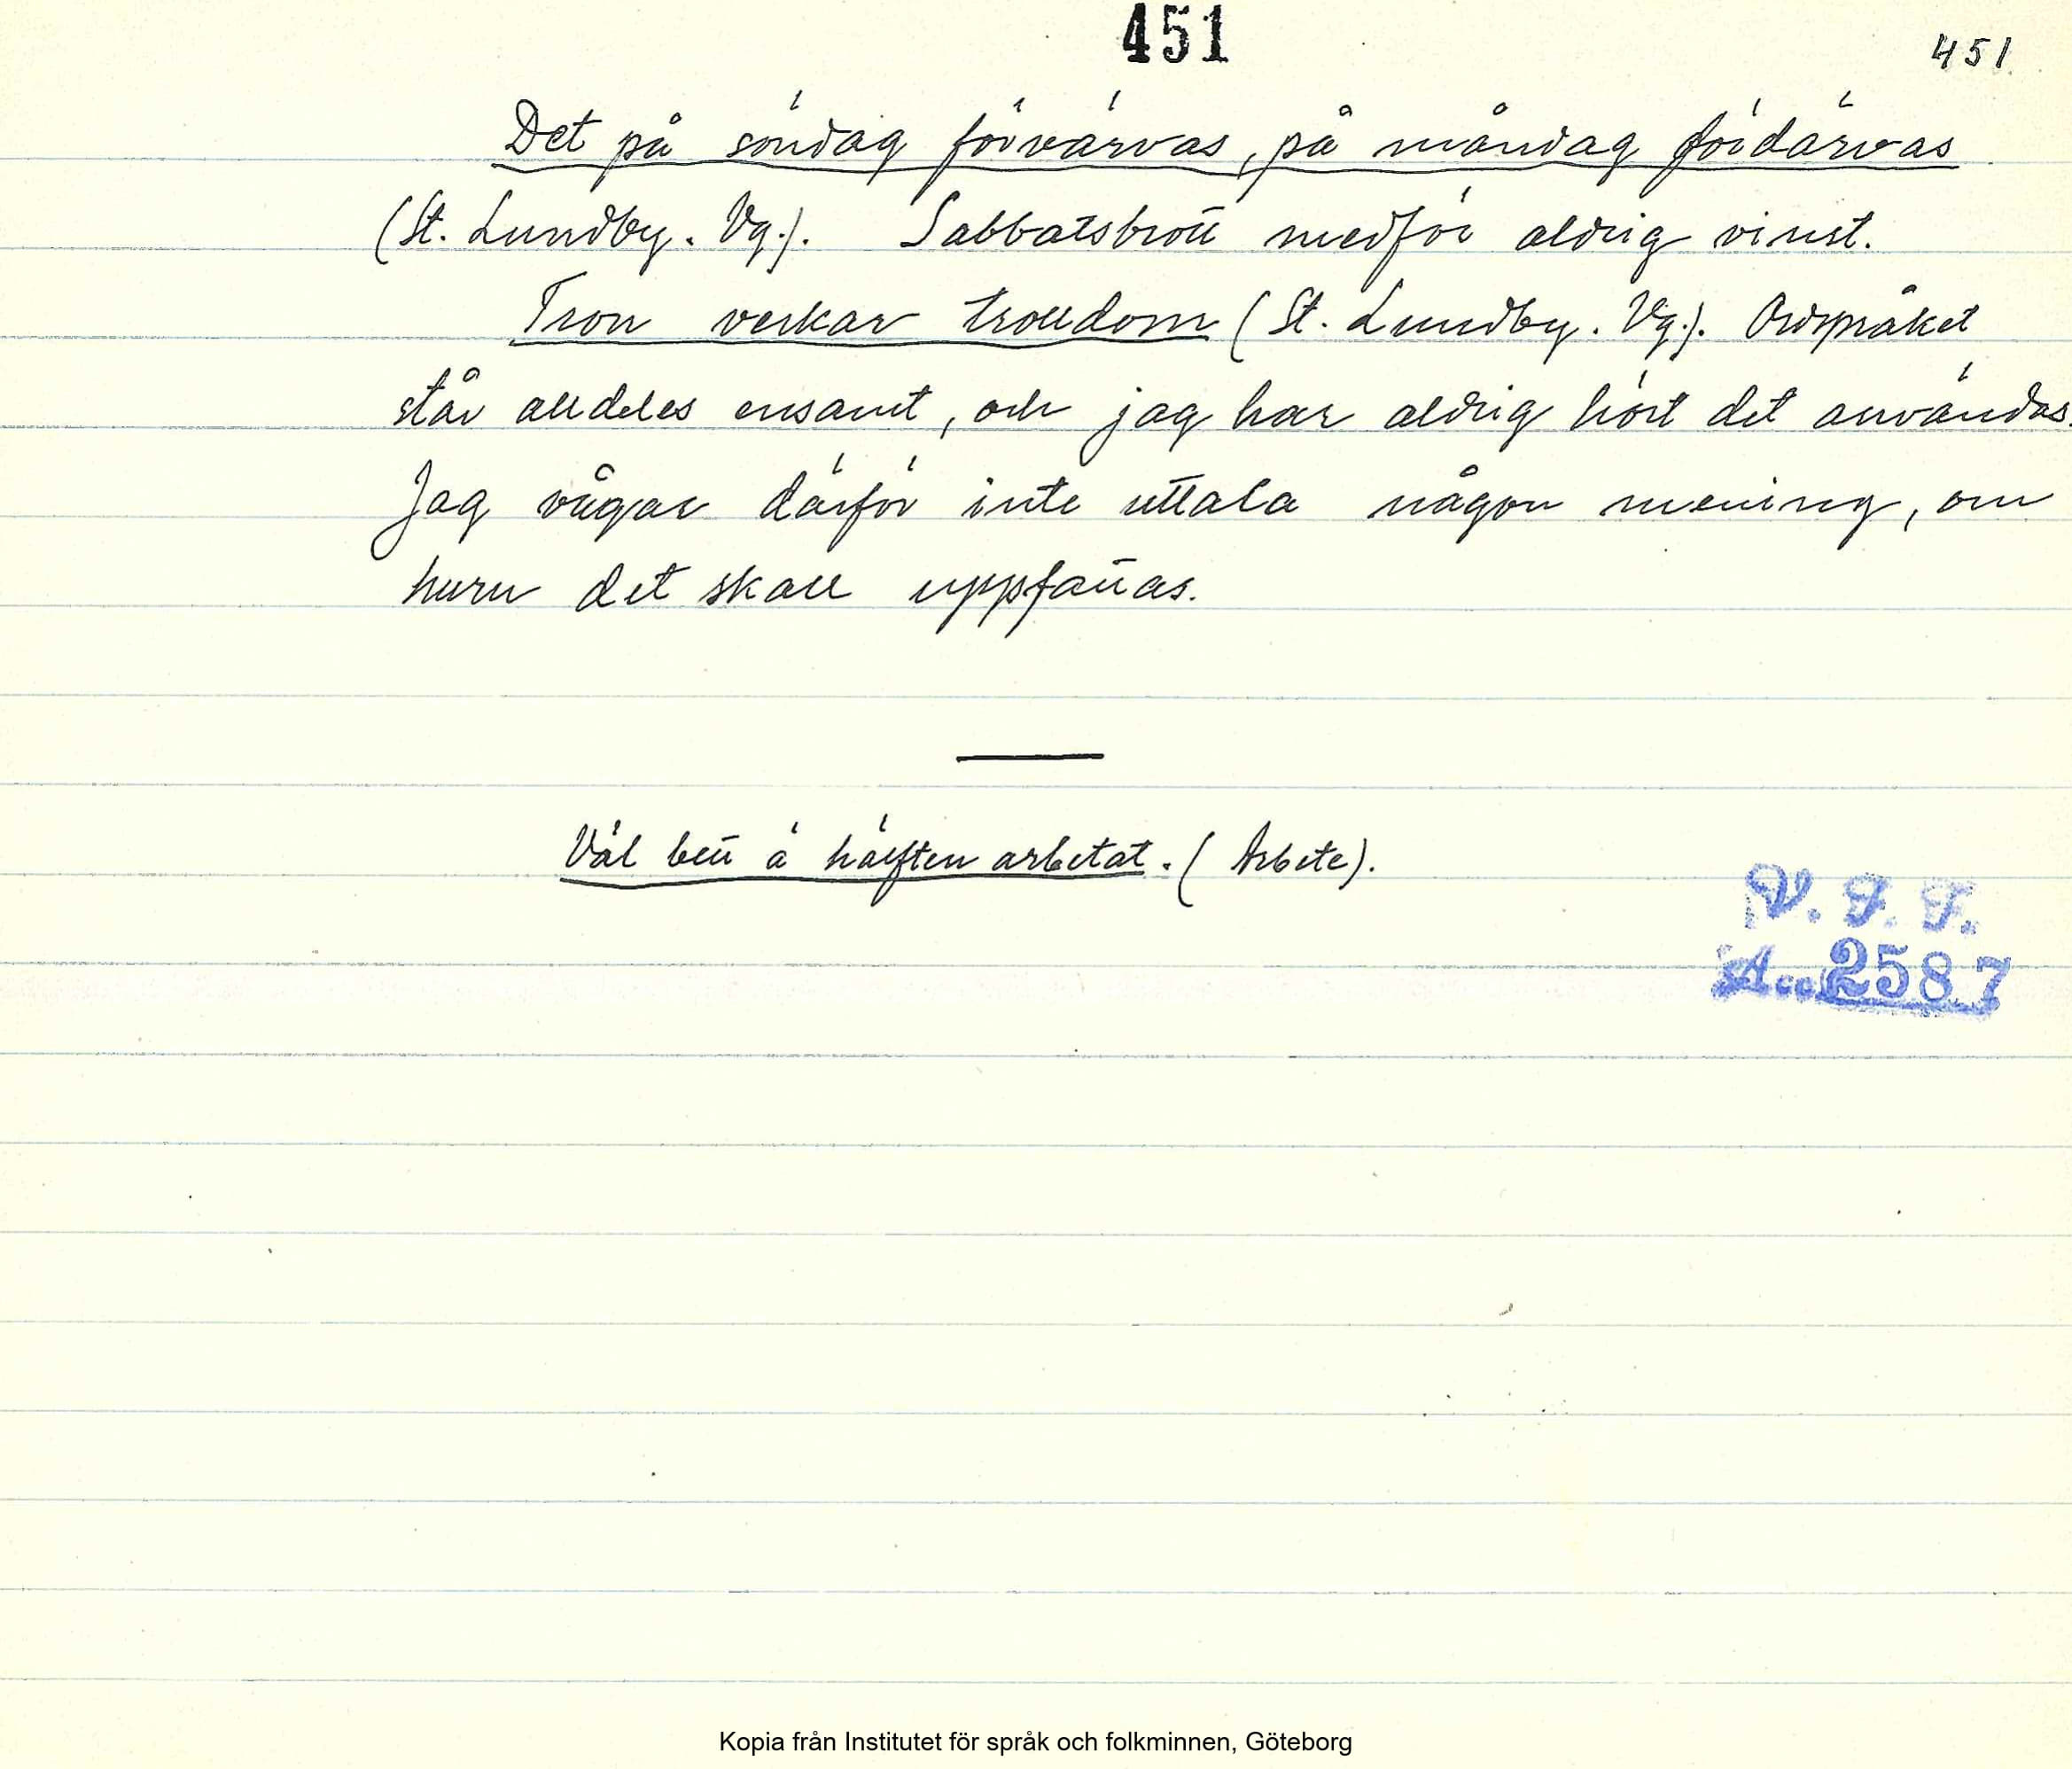 451
451
Det på söndag förvärvas, på måndag fördärvas
(St. Lundby. Vg.). Sabbatsbrott medför aldrig vinst.
Tron verkar trolldom (St. Lundby. Vg.). Ordspråket
står alldeles ensamt, och jag har aldrig hört det användas.
Jag vågar därför inte uttala någon mening, om
huru det skall uppfattas.
Väl bett ä hälften arbetat. (Arbete).
V. F. F.
Acc 2587
Kopia från Institutet för språk och folkminnen, Göteborg